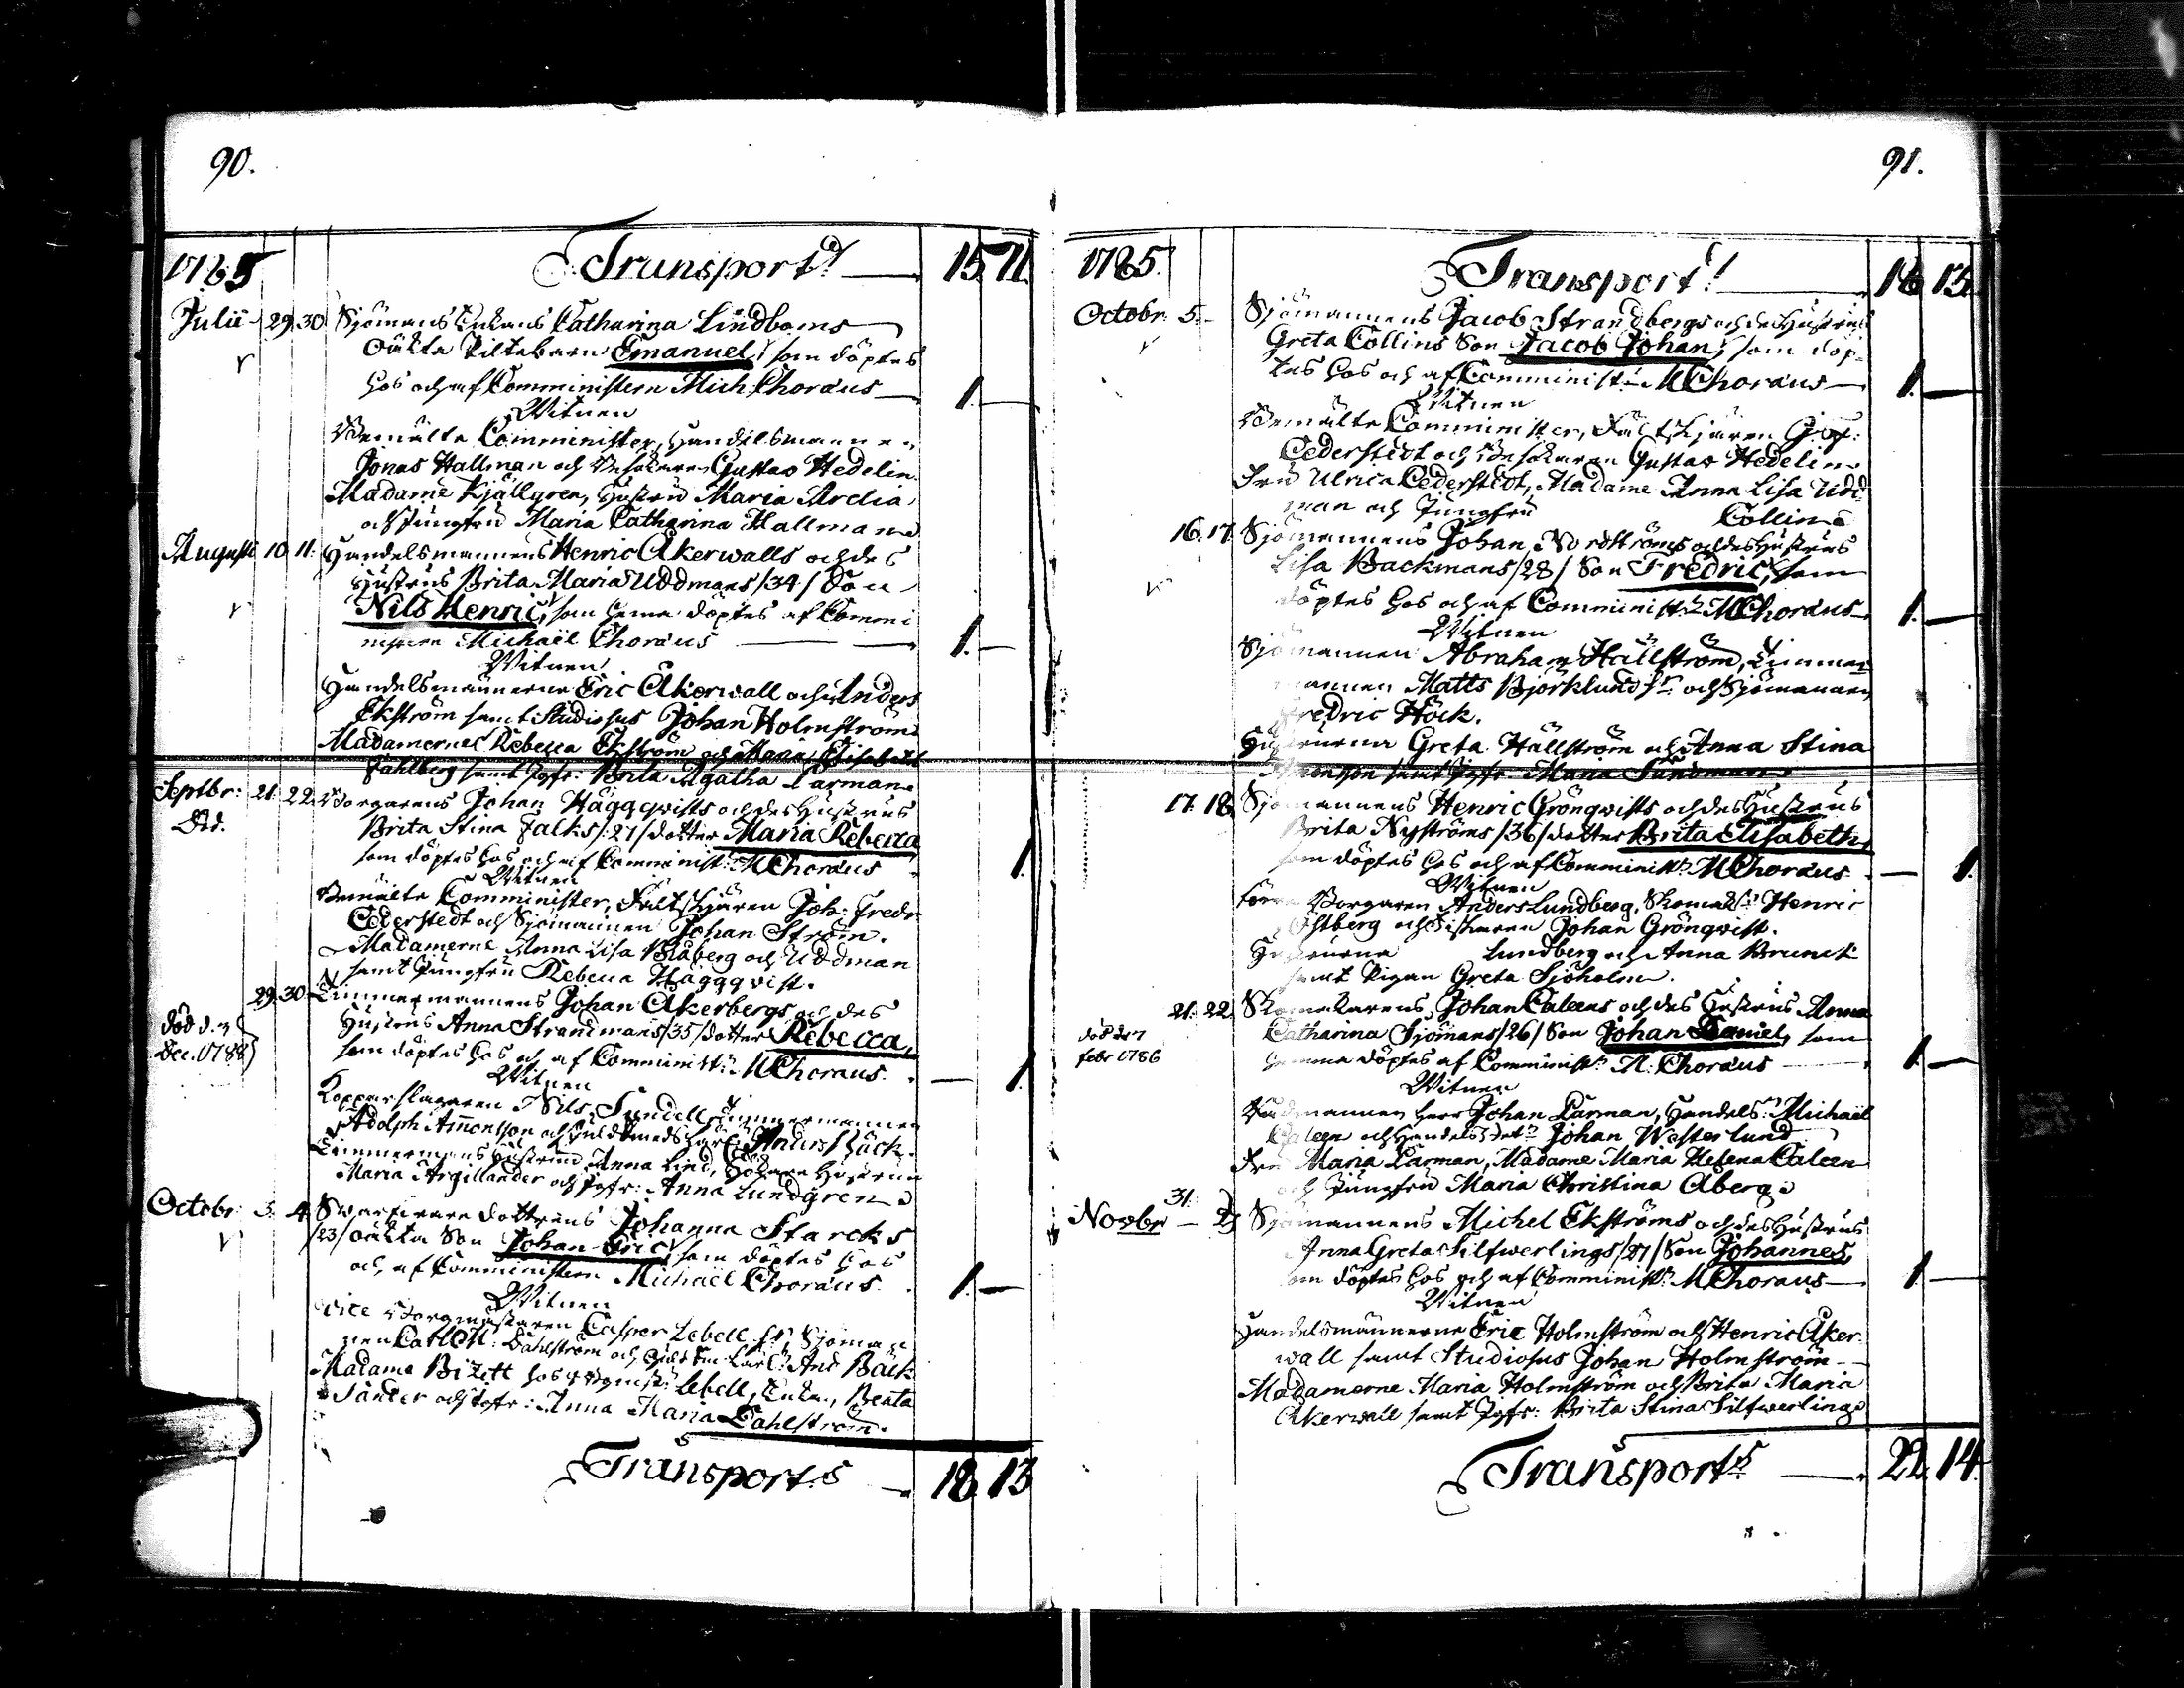 90.
1785 Transport 15. 11.
Julii 29. 30 Sjömans Enkans Catharina Lindboms
oäkta Piltebarn Emanuel, som döptes
hos och af Comministern Mich: Choraus 1. —
Witnen
Bemälte Comminister, Handelsmannen
Jonas Hallman och Gustav Hedelin.
Madame Kjällgren, Hustru Maria Arelia
och Jungfru Maria Catharina Hallman
Augusti 10 11. Handelsmannens Henric Åkerwalls och des
Hustrus Brita Maria Uddmans /34/ Son
Nils Henric, som hema döptes af Commi
nistern Michaël Choraus 1. —
Witnen
Handelsmännerne Eric Åkerwall och Anders
Ekström samt Studiosus Johan Holmström
Madamerne Rebecca Ekström och Maria Elisabeth
Fahlberg samt Jgfr: Brita Agatha Carman
Septbr: 21. 22. Borgarens Johan Häggqwists och des Hustrus
Brita Stina Falks /27/ dotter Maria Rebecca
som döptes hos och af Comminist: M Choraus 1.
Witnen
Bemälte Comminister, Fältskjären Joh: Fredr
Cederstedt och Sjömannen Johan Ström.
Madamerne Anna Lisa Blåberg och Uddman
samt Jungfru Rebecca Häggqvist.
29. 30. Timmermannens Johan Åkerbergs och des
död d. 3
Dec. 1788
Hustrus Anna Strandmans /35/ dotter Rebecca,
som döptes hos och af Comminist: M Choraus. — 1.
Witnen
Kopparslagaren Nils Sundell, Timmermannen
Adolph Amonsson och Guldsmeds Anders Bäck.
Timmermans Hustrun Anna Lind, Hustrun
Maria Argillander och Jgfr: Anna Lundgren
Octobr: 3. 4. Swarfware dottrens Johanna Starcks
/23/ oäkta Son Johan Eric, som döptes hos
och af Comministern Michaël Choraus. 1. —
Witnen
Vice Borgmästaren Casper Lebell Sjöman
nen Carl Dahlström och And Bäck
Madame Lebell, Enkan, Beata
och Jgfr: Anna Maria Dahlström.
Transport 18 13
91.
1785. Transport 18 13.
Octobr: 5. Sjömannens Jacob Strandbergs och des Hustrus
Greta Collins Son Jacob Johan, som döp
tes hos och af Comminist: M Choraus 1. —
Witnen
Bemälte Comminister, Fältskjären
Cederstedt och Gustav Hedelin.
Fru Ulrica Cederstedt, Madame Anna Lisa Udd
man och Jungfru Collin
16. 17. Sjömannens Johan Nordströms och des Hustrus
Lisa Backmans /28/ Son Fredric, som
döptes hos och af Comminist: M Choraus 1. —
Witnen
Sjömannen Abraham Hällström, Timmer
mannen Matts Björklund och Sjömannen
Fredric Höck.
Hustrurna Greta Hällström och Anna Stina
Amonsson samt Jgfr Maria Sundman
17. 18. Sjömannens Henric Grönqwists och des Hustrus
Brita Nyströms /36/ dotter Brita Elisabeth,
som döptes hos och af Comminist: M Choraus. — 1.
Witnen
Borgaren Anders Lundberg, Henric
Östberg och Johan Grönqvist.
Hustrurna Lundberg och Anna Brunck
samt Pigan Greta Sjöholm.
21. 22. Skomakarens Johan Caleens och des Hustrus Anna
död d. 7
febr 1786
Catharina Sjömans /26/ Son Johan Daniel, som
hemma döptes af Comminist: M. Choraus 1. —
Witnen
Rådmannen Herr Johan Carman, Handels: Michaël
Caleen och Johan Westerlund
Fru Maria Carman, Madame Maria Helena Caleen
och Jungfru Maria Christina Åberg.
31.
Novbr — 2. Sjömannens Michel Ekströms och des Hustrus
Anna Greta Silfwerlings /27/ Son Johannes,
som döptes hos och af Comminist: M Choraus 1. —
Witnen
Handelsmännerne Eric Holmström och Henric Åker
wall samt Studiosus Johan Holmström
Madamerne Maria Holmström och Brita Maria
Åkerwall samt Jgfr: Brita Stina Silfwerling
Transport 22. 14.